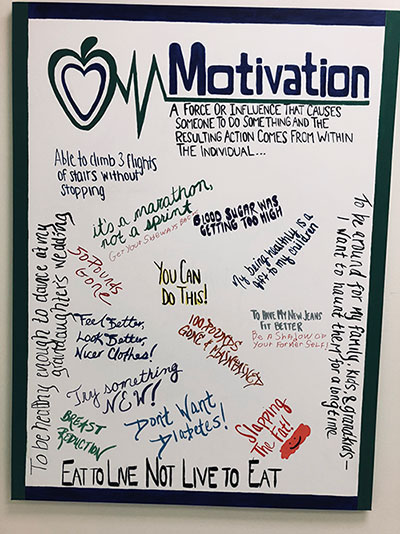 Motivation
A FORCE OR INFLUENCE THAT CAUSES
SOMEONE TO DO SOMETHING AND THE
RESULTING ACTION COMES FROM WITHIN
THE INDIVIDUAL...
Able to climb 3 flights
of stairs without
stopping
it's a marathon,
not a sprint
BlOOD SUGAR WAS
GETTING TOO HIGH
My being healthy is a
gift to my children
To be around for my family, kids & grandkids –
I want to haunt them for a long time
To be healthy enough to dance at my
granddaughters wedding
50 POUNDS
GONE
YOU CAN
DO THIS!
TO HAVE MY NEW JEANS
FIT BETTER
BE A SHADOW OF
YOUR FORMER SELF!
Feel Better,
Look Better,
Nicer Clothes!
100 POUNDS
GONE &
Try something
NEW!
BREAST
REDUCTION
Don't Want
Diabetes!
Slapping
The Fat!
EAT TO LIVE NOT LIVE TO EAT